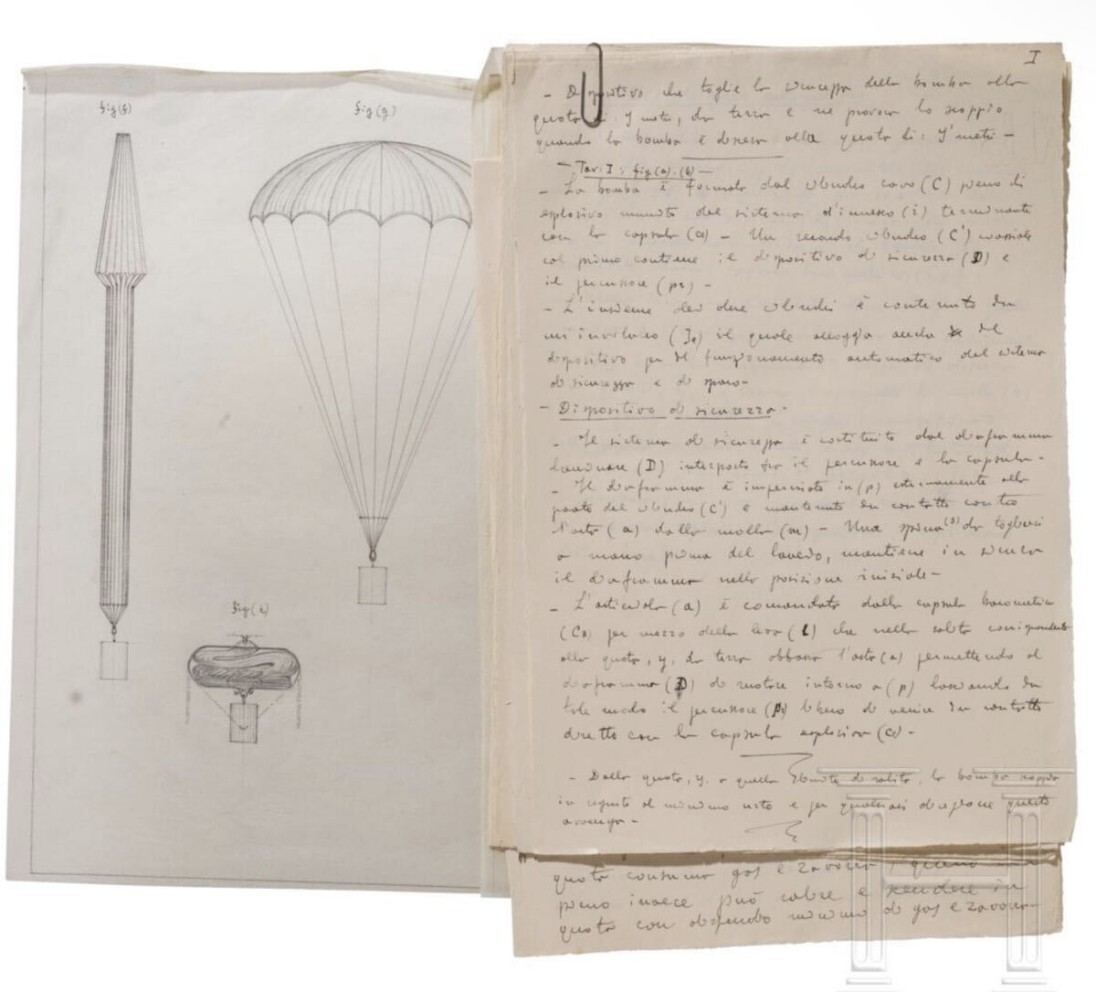 fig(f)
fig(g)
fig(i)
I
- Dispositivo che toglie la sicurezza della bomba alla
quota di y metri, da terra e ne provoca lo scoppio
quando la bomba è discesa alla quota di: y' metri -
- Tav. I: fig(a).(b) -
- La bomba è formata dal cilindro cavo (C) pieno di
esplosivo munito del sistema d'innesco (i) terminante
con la capsula (c) - Un secondo cilindro (C') coassiale
col primo contiene il dispositivo di sicurezza (D) e
il percussore (pr) -
- L'insieme dei due cilindri è contenuto in
un involucro (Io) il quale alloggia anche il
dispositivo per il funzionamento automatico del sistema
di sicurezza e di sparo -
- Dispositivo di sicurezza -
- Il sistema di sicurezza è costituito dal diaframma
laminare (D) interposto fra il percussore e la capsula -
- Il diaframma è imperniato in (p) esternamente alla
parete del cilindro (C') e mantenuto in contatto contro
l'asta (a) dalla molla (m) - Una spina (s) da togliersi
a mano prima del lancio, mantiene in sicura
il diaframma nella posizione iniziale -
- L'asticciola (a) è comandata dalla capsula barometrica
(Cb) per mezzo della leva (l) che nella salita corrispondente
alla quota, y, da terra abbassa l'asta (a) permettendo al
diaframma (D) di ruotare intorno a (p) lasciando in
tale modo il percussore (pr) libero di venire in contatto
diretto con la capsula esplosiva (c) -
- Dalla quota, y, a quella limite di salita, la bomba scoppia
in seguito al minimo urto e per qualsiasi direzione questo
avvenga -
quota consuma gas e zavorra,
pieno invece può salire e scendere in
quota con dispendio minimo di gas e zavorra -